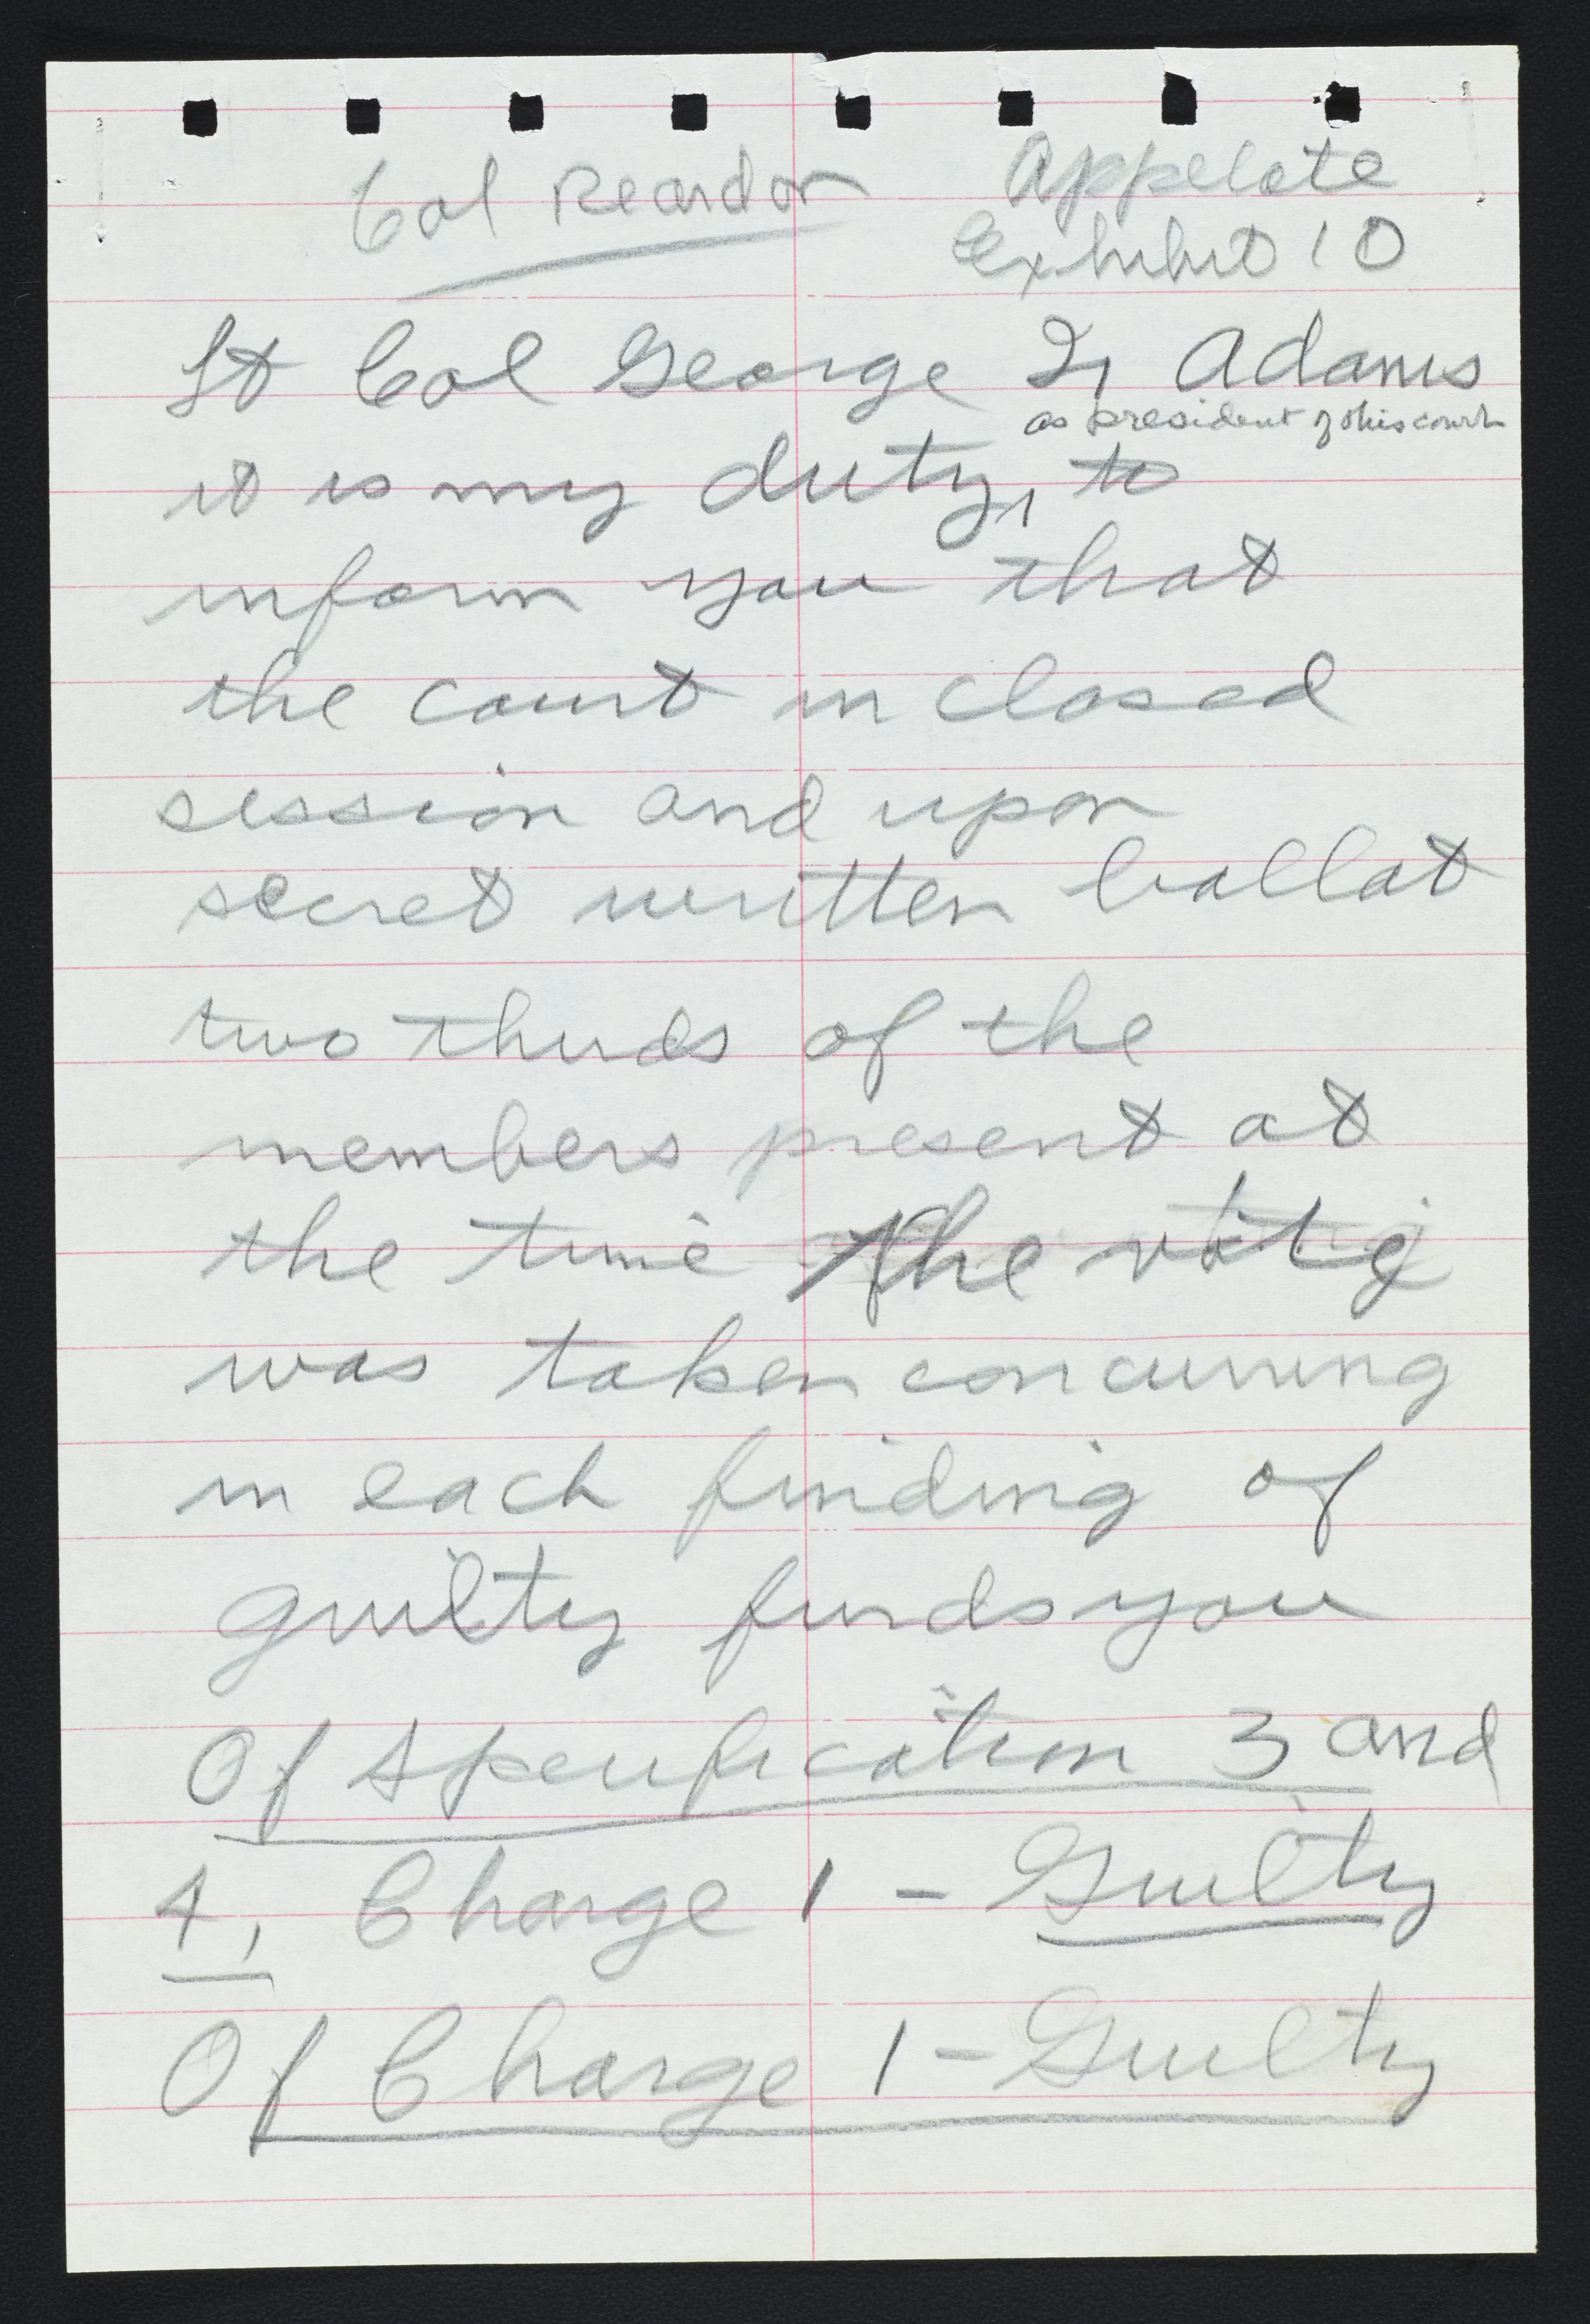 Col Reardon
Appelate
Exhibit 10
Lt Col George Adams
as president of this court
it is my duty, to
inform you that
the court in closed
session and upon
secret written ballat
two thirds of the
members present at
the time the
was taken concurring
in each finding of
guilty finds you
Of Specification 3 and
4, Charge 1 - Guilty
Of Charge 1 - Guilty